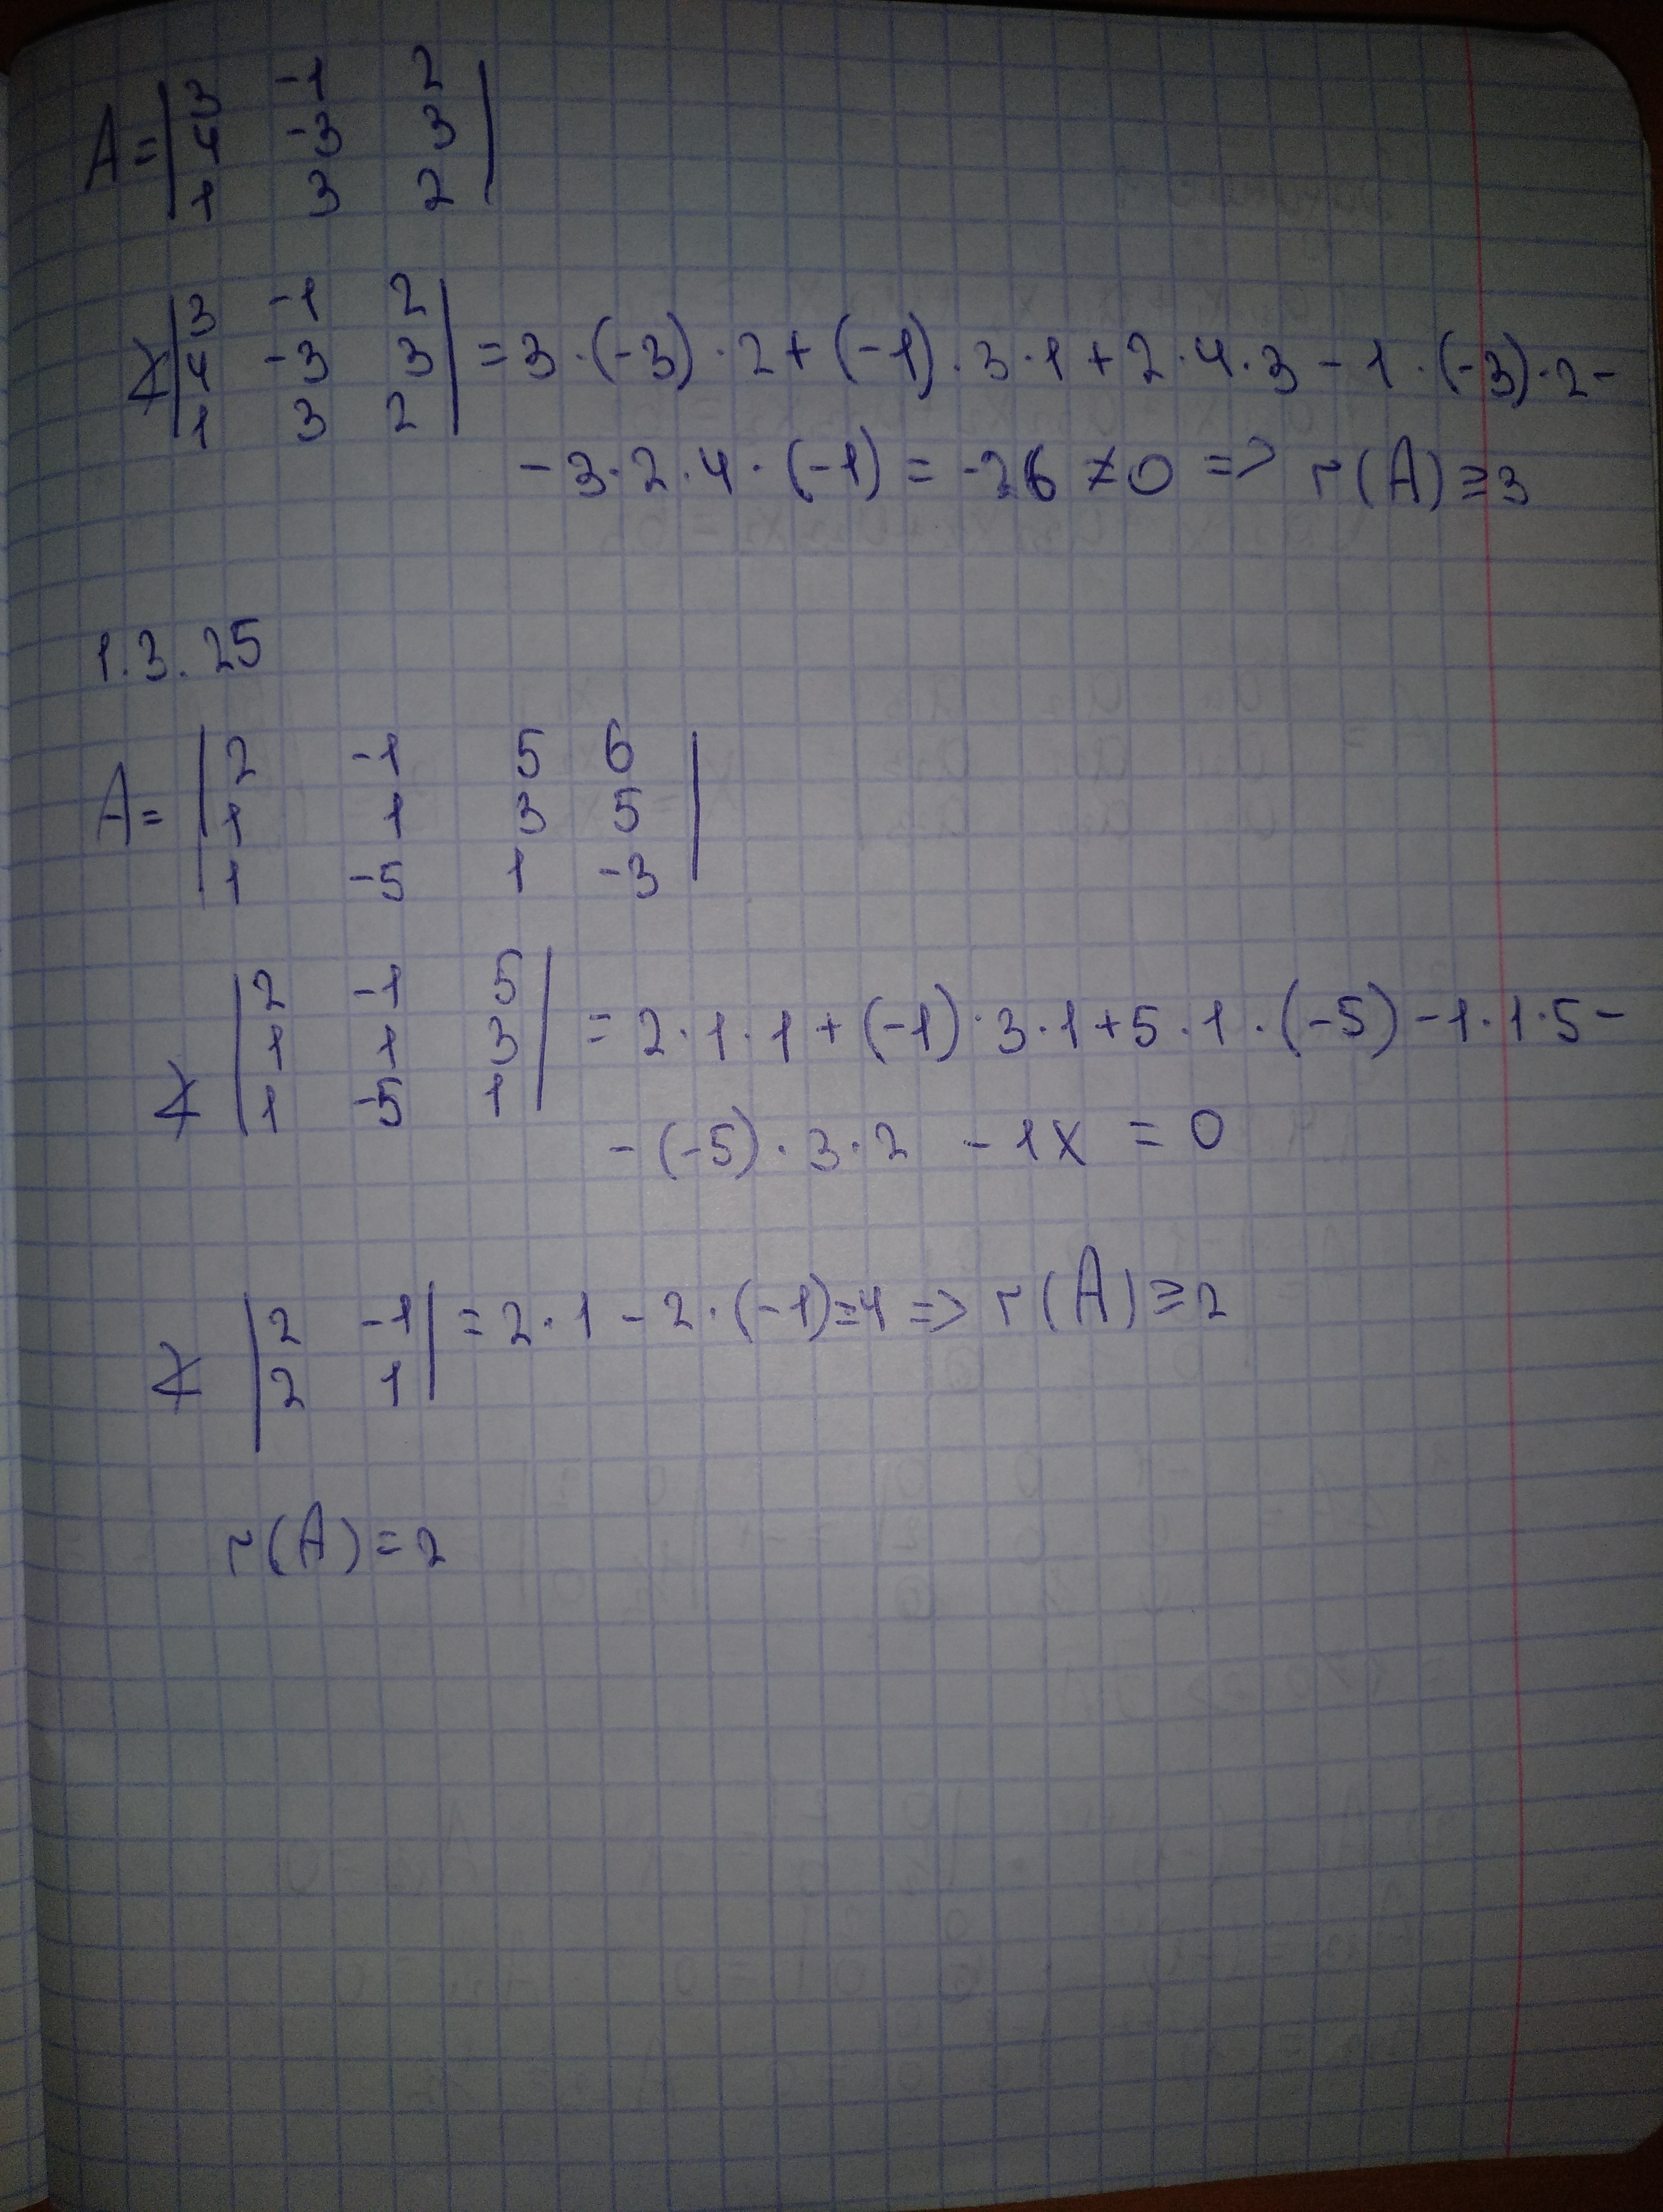 A = | 3 -1 2 |
| 4 -3 3 |
| 1 3 2 |
∠ | 3 -1 2 |
| 4 -3 3 | = 3 · (-3) · 2 + (-1) · 3 · 1 + 2 · 4 · 3 - 1 · (-3) · 2 -
| 1 3 2 |
- 3 · 2 · 4 · (-1) = -26 ≠ 0 => r(A) ≥ 3
1.3.25
A = | 2 -1 5 6 |
| 1 1 3 5 |
| 1 -5 1 -3 |
| 2 -1 5 |
| 1 1 3 | = 2 · 1 · 1 + (-1) · 3 · 1 + 5 · 1 · (-5) - 1 · 1 · 5 -
∠ | 1 -5 1 |
- (-5) · 3 · 2 - 1x = 0
| 2 -1 | = 2 · 1 - 2 · (-1) = 4 => r(A) ≥ 2
∠ | 2 1 |
r(A) = 2